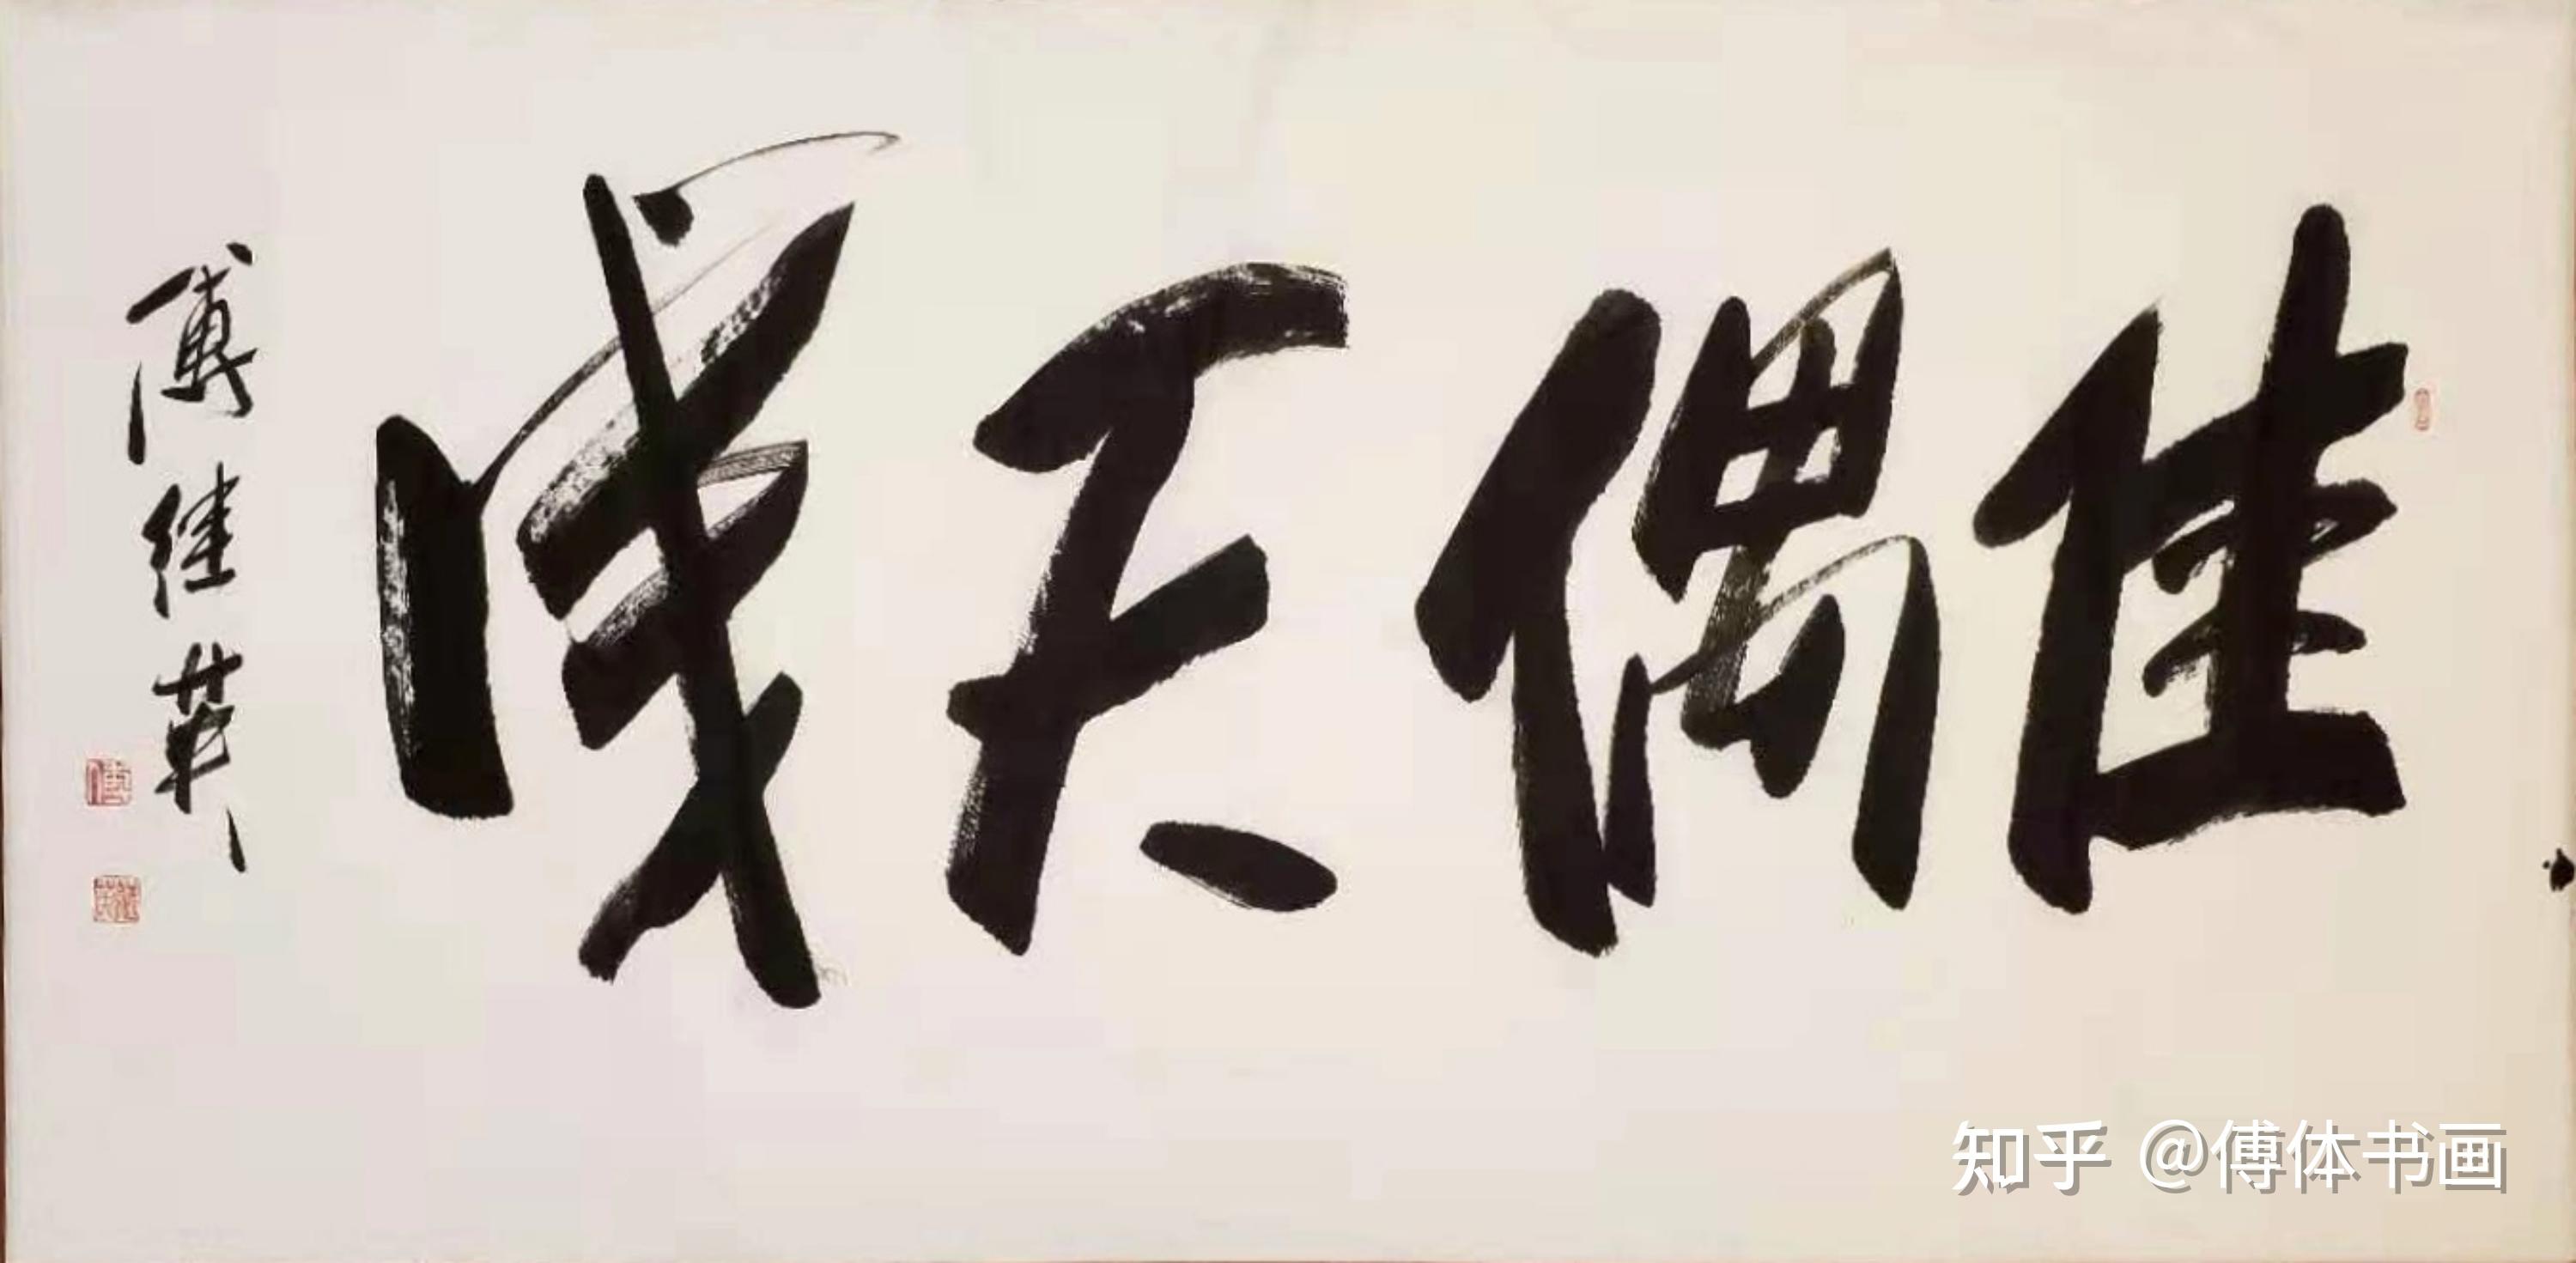 佳偶天成
傅继英
知乎 @傅体书画